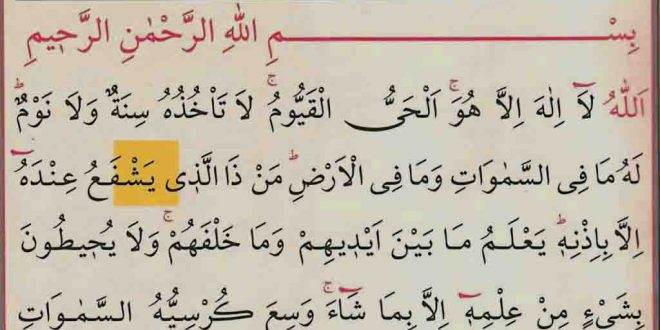 بِسْمِ اللهِ الرَّحْمٰنِ الرَّحٖيمِ
اَللّٰهُ لَٓا اِلٰهَ اِلَّا هُوَۚ اَلْحَيُّ الْقَيُّومُۚ لَا تَاْخُذُهُ سِنَةٌ وَلَا نَوْمٌؕ
لَهُ مَا فِى السَّمٰوَاتِ وَمَا فِى الْاَرْضِؕ مَنْ ذَا الَّذٖى يَشْفَعُ عِنْدَهُٓ
اِلَّا بِاِذْنِهٖؕ يَعْلَمُ مَا بَيْنَ اَيْدٖيهِمْ وَمَا خَلْفَهُمْۚ وَلَا يُحٖيطُونَ
بِشَىْءٍ مِنْ عِلْمِهٖٓ اِلَّا بِمَا شَٓاءَۚ وَسِعَ كُرْسِيُّهُ السَّمٰوَاتِ